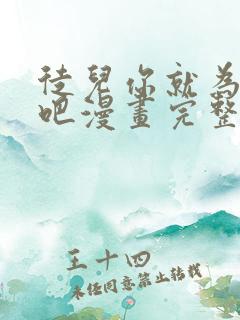 徒兒你就為
吧漫畫完整
王十四
未经同意禁止转载